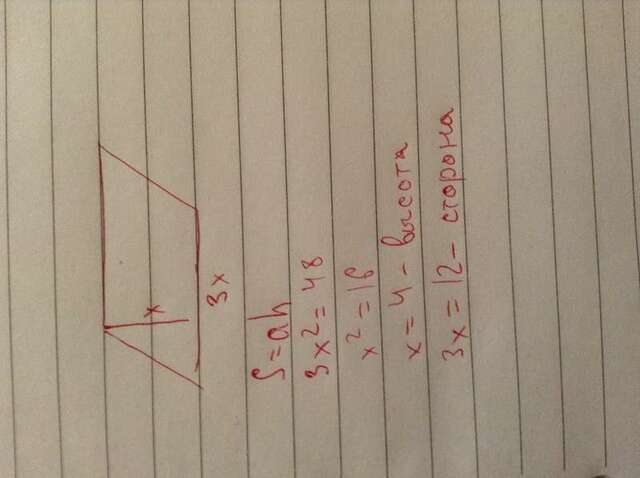 x
3x
S=ah
3x²=48
x²=16
x=4 - высота
3x=12 - сторона